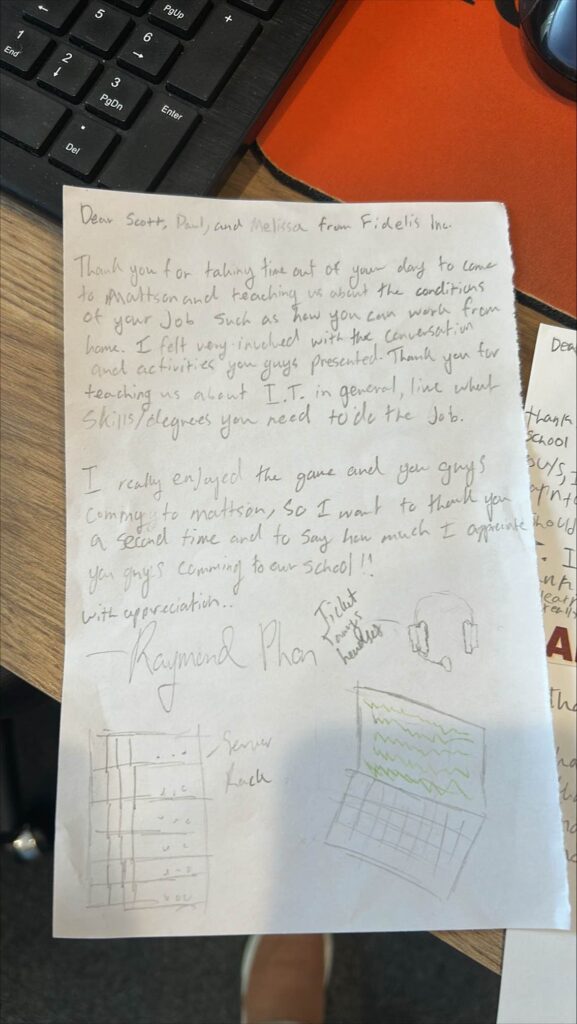 PgUp
+
5
6
1
End
2
3
PgDn
Enter
.
Del
Dear Scott, Paul, and Melissa from Fidelis Inc.
Thank you for taking time out of your day to come
to Mattson and teaching us about the conditions
of your Job such as how you can work from
home. I felt very involved with the conversation
and activities you guys presented. Thank you for
teaching us about I.T. in general, like what
skills/degrees you need to do the Job.
I really enjoyed the game and you guys
Comming to mattson, so I want to thank you
a second time and to say how much I appreciate
you guys Comming to our school!!
with appreciation..
-Raymond Phan
Ticket
headset
Server
Rack
Dea
thank
School